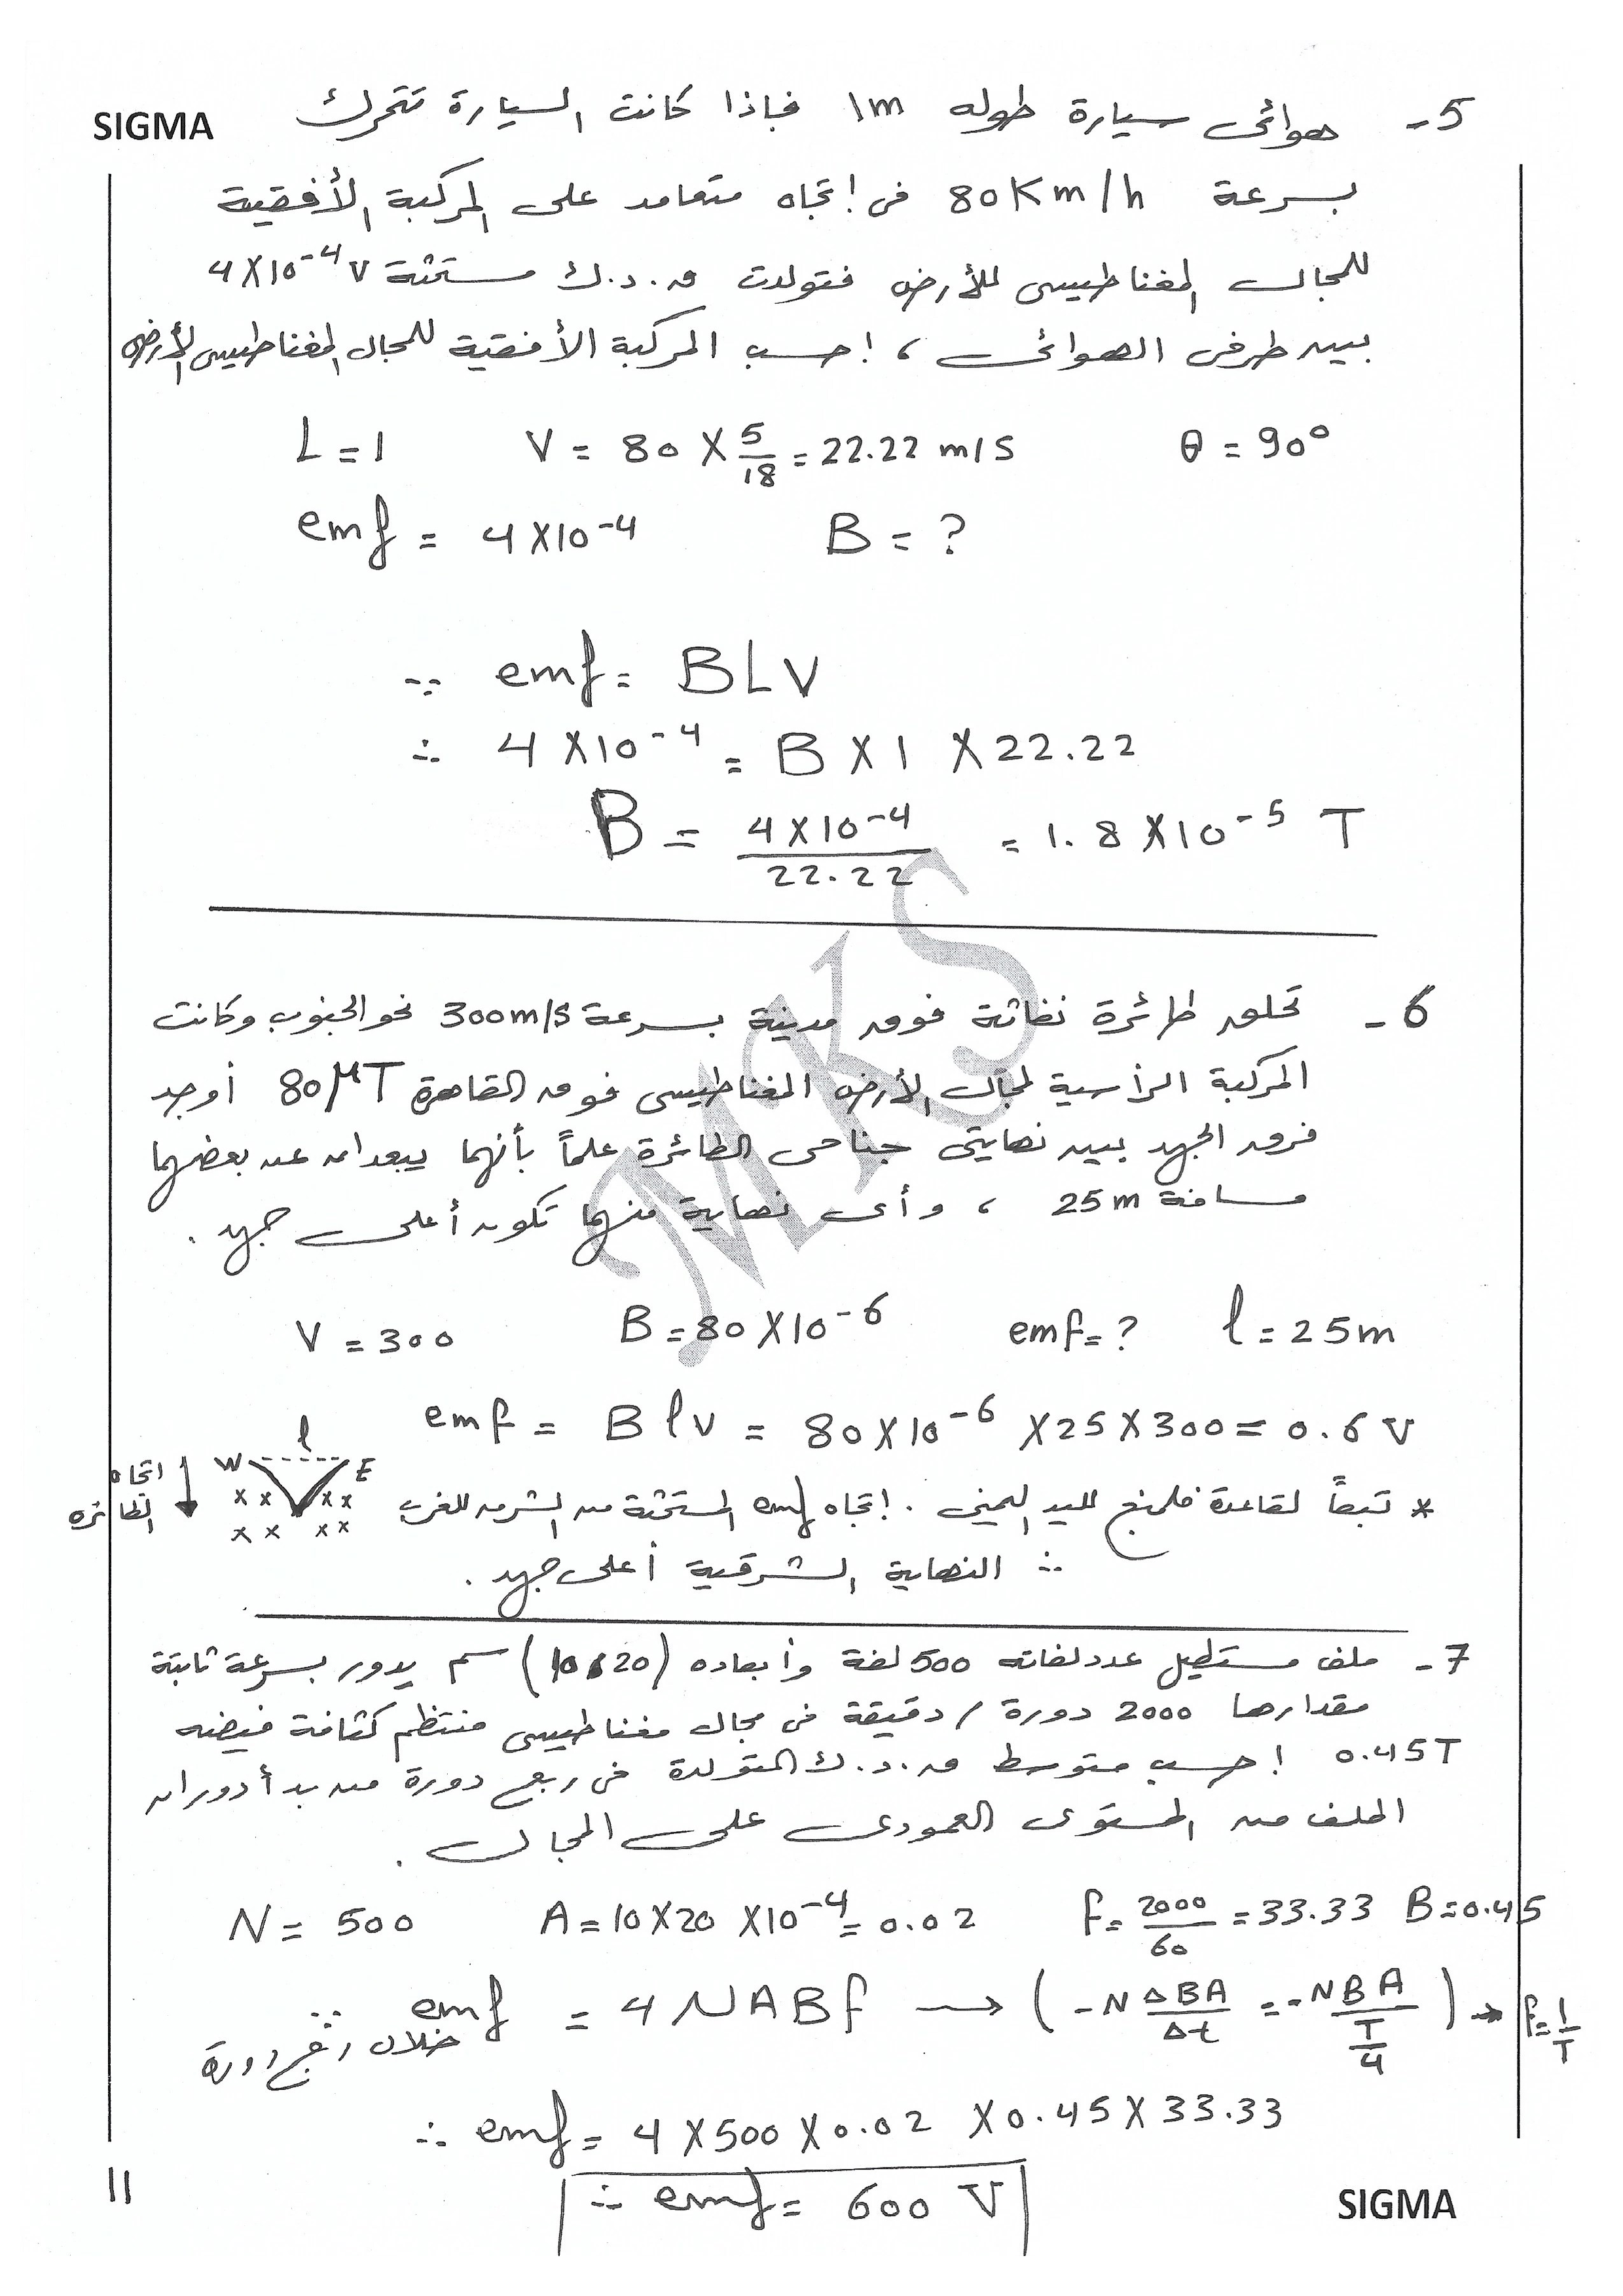 SIGMA
5- هوائى سيارة طوله 1m فإذا كانت السيارة تتحرك
بسرعة 80Km/h فى إتجاه متعامد على المركبة الأفقية
للمجال المغناطيسى للأرض فتولدت ق.د.ك مستحثة 4X10⁻⁴ V
بين طرفى الهوائى ، إحسب المركبة الأفقية للمجال المغناطيسى للأرض
L = 1 V = 80 X 5/18 = 22.22 m/s θ = 90°
emf = 4X10⁻⁴ B = ?
∵ emf = BLV
∴ 4 X10⁻⁴ = B X 1 X 22.22
B = 4X10⁻⁴/22.22 = 1.8 X10⁻⁵ T
MKS
6- تحلق طائرة نفاثة فوق مدينة بسرعة 300m/s نحو الجنوب وكانت
المركبة الرأسية لمجال الأرض المغناطيسى فوق القاهرة 80μT أوجد
فرق الجهد بين نهايتى جناحى الطائرة علماً بأنهما يبعدان عن بعضهما
مسافة 25m ، وأى نهاية منهما تكون أعلى جهد .
V = 300 B = 80 X10⁻⁶ emf = ? l = 25m
emf = B l v = 80X10⁻⁶ X25X300 = 0.6 V
l
W E
اتجاه الطائرة
* تبعاً لقاعدة فلمنج لليد اليمنى . إتجاه emf المستحثة من الشرق للغرب
∴ النهاية الشرقية أعلى جهد .
7- ملف مستطيل عدد لفاته 500 لفة وأبعاده (10،20) سم يدور بسرعة ثابتة
مقدارها 2000 دورة / دقيقة فى مجال مغناطيسى منتظم كثافة فيضه
0.45T إحسب متوسط ق.د.ك المتولدة فى ربع دورة من بدأ دوران
الملف من المستوى العمودى على المجال .
N = 500 A = 10X20 X10⁻⁴ = 0.02 f = 2000/60 = 33.33 B = 0.45
∵ emf = 4 NABf → (-N ΔBA/Δt = -NBA/(T/4)) → f = 1/T
خلال ربع دورة
∴ emf = 4 X500 X0.02 X0.45X 33.33
∴ emf = 600 V
11
SIGMA